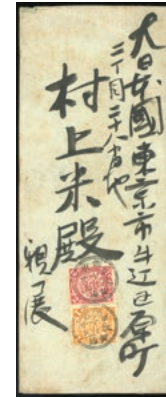 大日本國東京市牛込区原町
二丁目二十八番地
村上米殿
親展